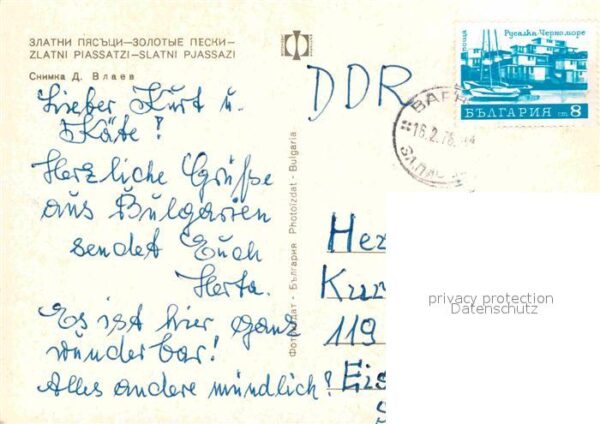 ЗЛАТНИ ПЯСЪЦИ—ЗОЛОТЫЕ ПЕСКИ—
ZLATNI PIASSATZI—SLATNI PJASSAZI
Снимка Д. Влаев
Lieber Kurt u.
Käte!
Herzliche Grüße
aus Bulgarien
sendet Euch
Herta.
Es ist hier ganz
wunderbar!
Alles andere mündlich!
Фотоиздат - България Photoizdat - Bulgaria
DDR
поща
Русалка-Черноморе
БЪЛГАРИЯ ст 8
ВАРН
16.2.76
Her
Kur
119
Eis
privacy protection
Datenschutz